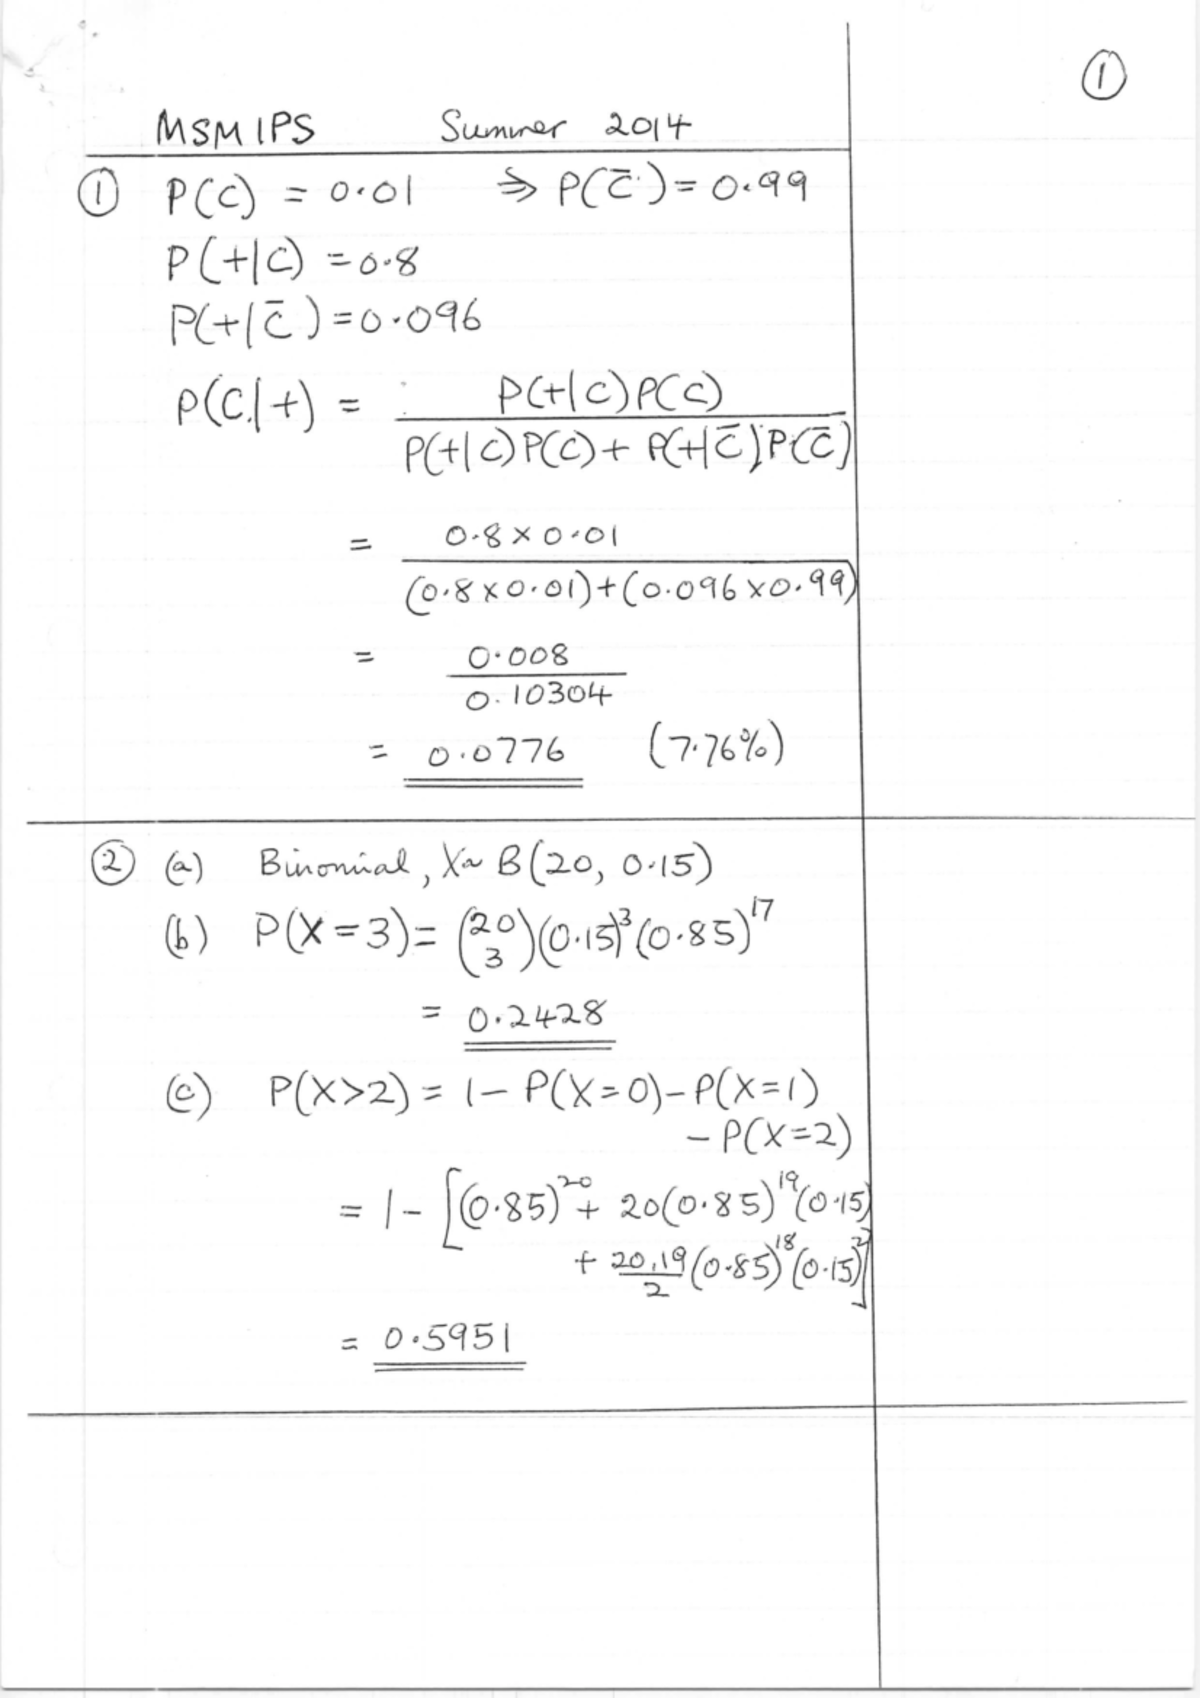 ①
MSM1PS Summer 2014
① P(C) = 0.01 ⇒ P(C̄) = 0.99
P(+|C) = 0.8
P(+|C̄) = 0.096
P(C|+) = P(+|C)P(C)
P(+|C)P(C) + P(+|C̄)P(C̄)
= 0.8 × 0.01
(0.8 × 0.01) + (0.096 × 0.99)
= 0.008
0.10304
= 0.0776 (7.76%)
② (a) Binomial, X~ B(20, 0.15)
(b) P(X = 3) = (20 3)(0.15)³(0.85)¹⁷
= 0.2428
(c) P(X>2) = 1 - P(X=0) - P(X=1)
- P(X=2)
= 1 - [(0.85)²⁰ + 20(0.85)¹⁹(0.15)
+ 20.19/2 (0.85)¹⁸(0.15)²]
= 0.5951